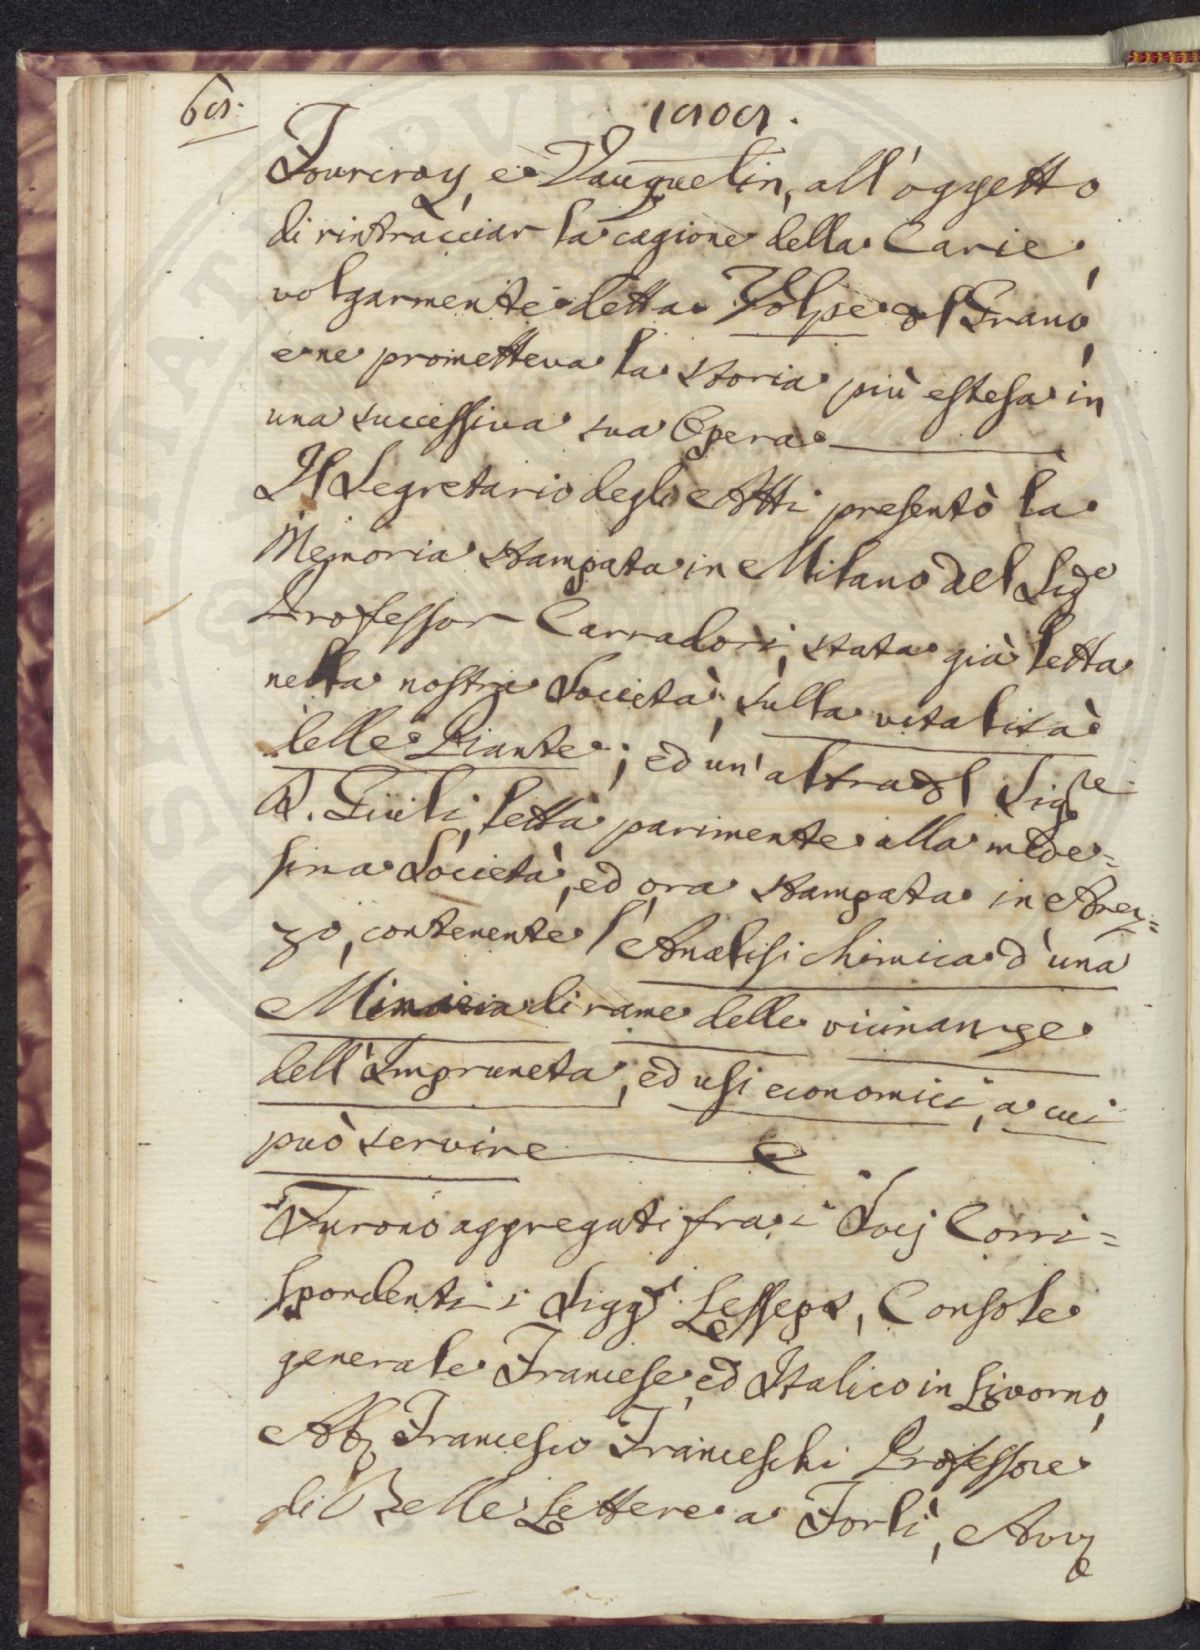 68.
1808.
Fourcroy, e Vauquelin, all'oggetto
di rintracciar la cagione della Carie,
volgarmente detta Volpe del Grano,
e ne prometteva la storia più estesa in
una successiva sua Opera
Il Segretario degli Atti presentò la
Memoria stampata in Milano del Sigre
Professor Carradori, stata già letta
nella nostra Società, sulla vitalità
delle Piante; ed un'altra del Sigre
G. Giuli, letta parimente alla mede=
sima Società, ed ora stampata in Arez=
zo, contenente l'Analisi chimica d'una
Miniera di rame delle vicinanze
dell'Impruneta, ed usi economici, a cui
può servire
Furono aggregati fra i Socj Corri=
spondenti i Siggri Lesseps, Console
generale Francese, ed Italico in Livorno,
Ab. Francesco Franceschi Professore
di Belle Lettere a Forlì, Avv.